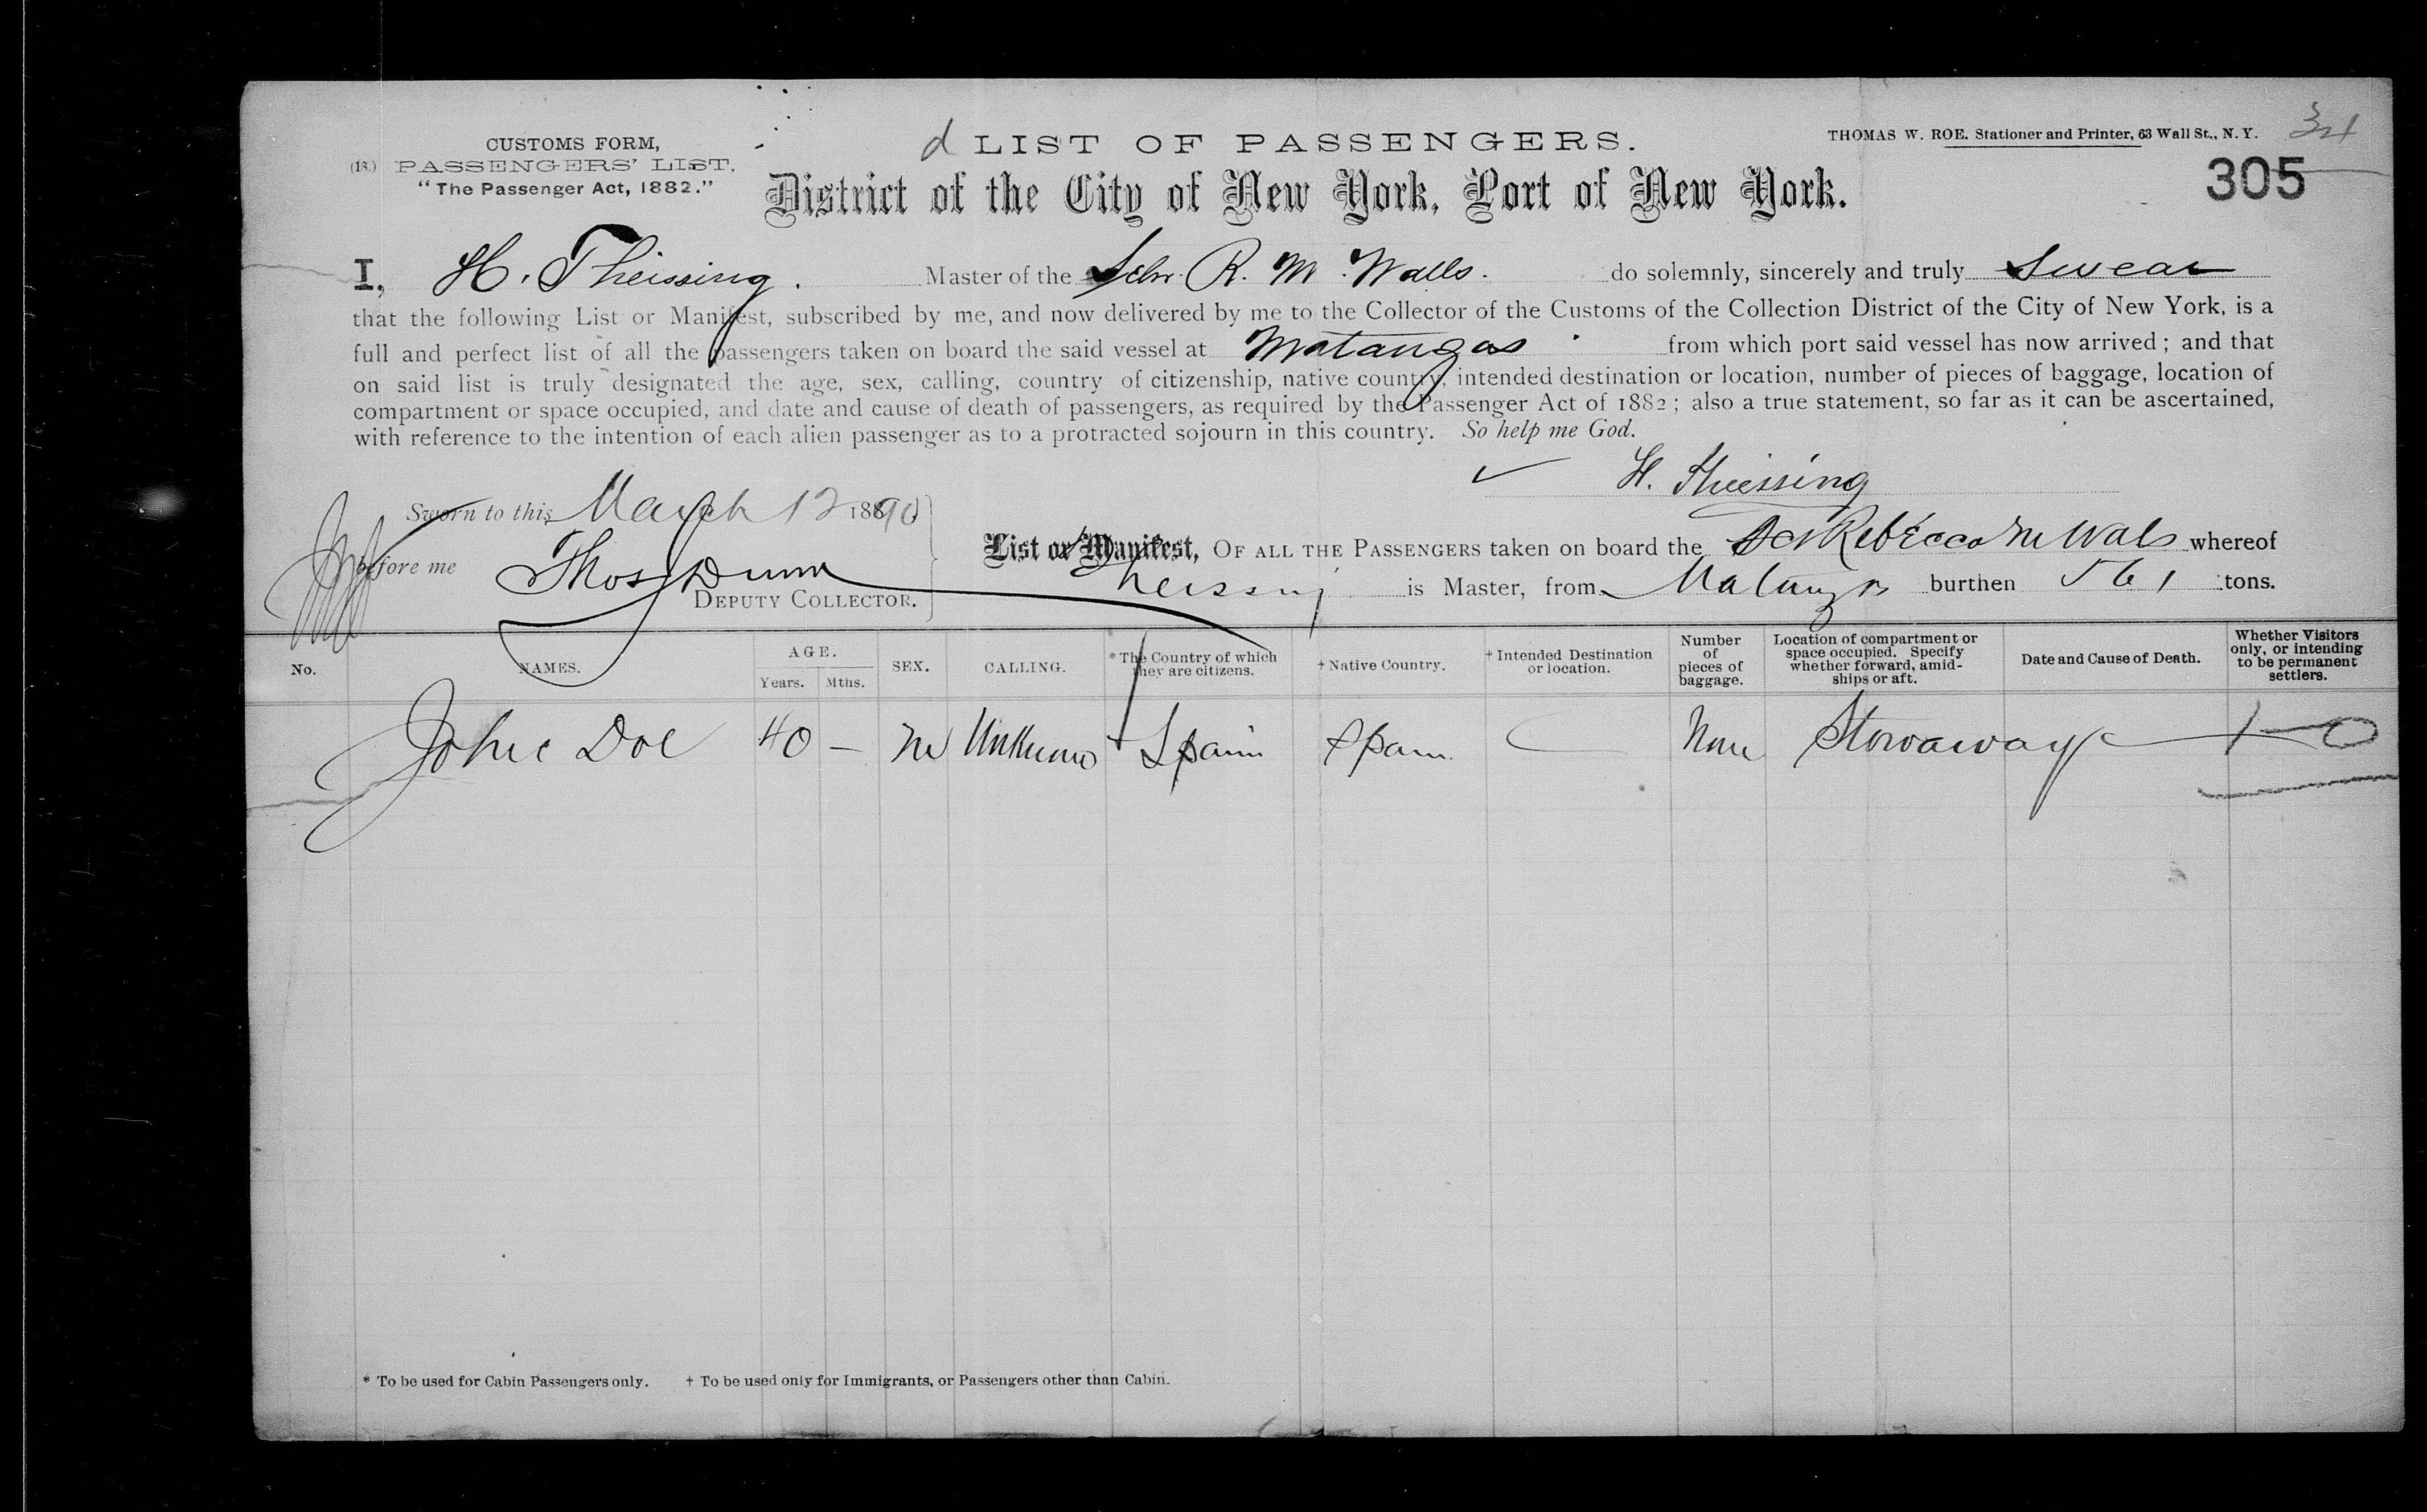 CUSTOMS FORM,
(18.) PASSENGERS' LIST,
"The Passenger Act, 1882."
d LIST OF PASSENGERS.
THOMAS W. ROE. Stationer and Printer, 63 Wall St., N. Y.
305
District of the City of New York, Port of New York.
I, H. Theissing. Master of the Schr. R. M. Walls. do solemnly, sincerely and truly Swear
that the following List or Manifest, subscribed by me, and now delivered by me to the Collector of the Customs of the Collection District of the City of New York, is a
full and perfect list of all the passengers taken on board the said vessel at Matanzas from which port said vessel has now arrived; and that
on said list is truly designated the age, sex, calling, country of citizenship, native country, intended destination or location, number of pieces of baggage, location of
compartment or space occupied, and date and cause of death of passengers, as required by the Passenger Act of 1882; also a true statement, so far as it can be ascertained,
with reference to the intention of each alien passenger as to a protracted sojourn in this country. So help me God.
H. Theissing
Sworn to this March 12 1890
before me Thos Dunn
DEPUTY COLLECTOR.
List or Manifest, OF ALL THE PASSENGERS taken on board the Sch Rebecca M Wals whereof
Theissing is Master, from Matanzas burthen 561 tons.
No. NAMES. AGE. Years. Mths. SEX. CALLING. * The Country of which they are citizens. † Native Country. † Intended Destination or location. Number of pieces of baggage. Location of compartment or space occupied. Specify whether forward, amidships or aft. Date and Cause of Death. Whether Visitors only, or intending to be permanent settlers.
John Doe 40 — M Unknown Spain Spain None Stowaway
* To be used for Cabin Passengers only. † To be used only for Immigrants, or Passengers other than Cabin.